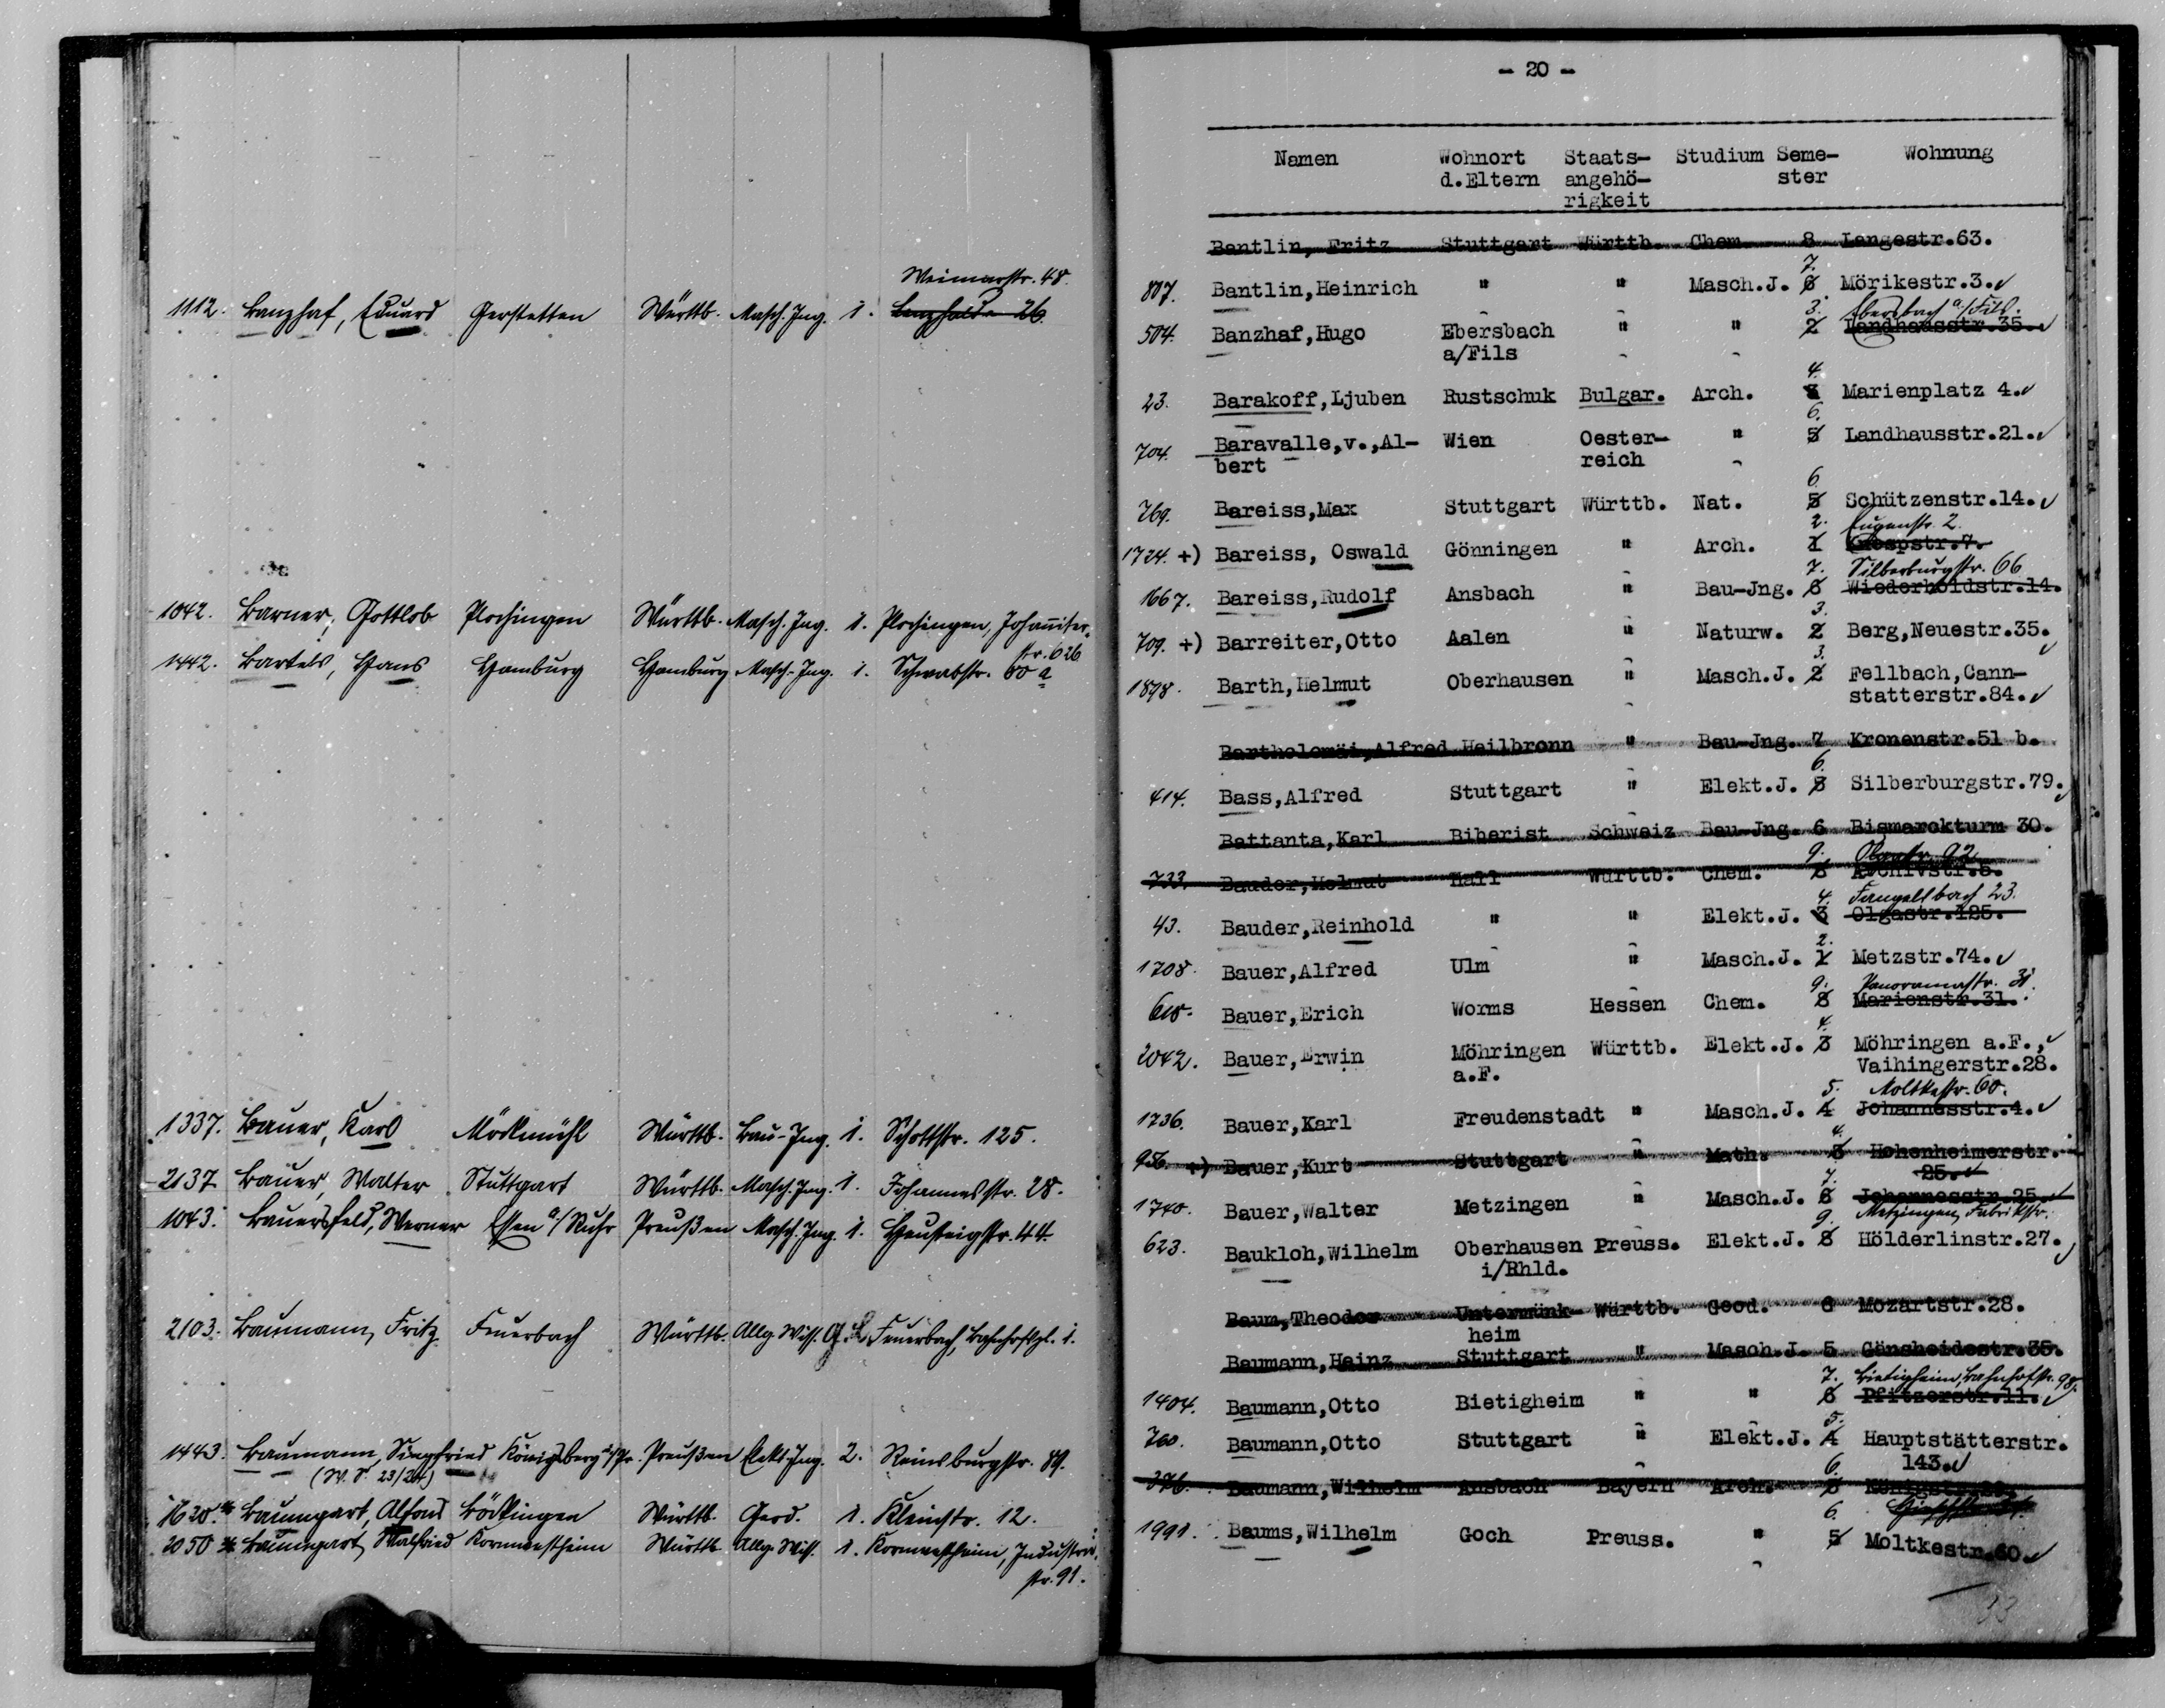 Weimarstr. 48.
1112. Banzhaf, Eduard Gerstetten Württb. Masch. Ing. 1. Lenzhalde 26.
1042. Barner, Gottlob Plochingen Württb. Masch. Ing. 1. Plochingen, Johanniter-
str. 626
1442. Bartels, Hans Hamburg Hamburg Masch.-Ing. 1. Schwabstr. 60 a
1337. Bauer, Karl Möckmühl Württb. Bau-Ing. 1. Schottstr. 125.
2137 Bauer, Walter Stuttgart Württb. Masch. Ing. 1. Johannesstr. 28.
1043. Bauersfeld, Werner Essen a/Ruhr Preußen Masch. Ing. 1. Heusteigstr. 44.
2103. Baumann, Fritz Feuerbach Württb. Allg. Wiss. Feuerbach, Bahnhofspl. 1.
1443. Baumann, Siegfried Königsberg i/Pr. Preußen Elekt. Ing. 2. Reinsburgstr. 89.
(W. S. 23/24)
1620. Baumgart, Alfons Böckingen Württb. Geod. 1. Kleinstr. 12.
2050 Baumgart, Walfried Kornwestheim Württb. Allg. Wiss. 1. Kornwestheim, Industrie-
str. 91.
- 20 -
Namen Wohnort Staats- Studium Seme- Wohnung
d.Eltern angehö- ster
rigkeit
Bantlin, Fritz Stuttgart Württb. Chem. 8 Langestr.63.
7.
807. Bantlin,Heinrich " " Masch.J. 6 Mörikestr.3.
3. Ebersbach a/Fils.
504. Banzhaf,Hugo Ebersbach " " 2 Landhausstr.35.
a/Fils
4.
23. Barakoff,Ljuben Rustschuk Bulgar. Arch. Marienplatz 4.
6.
704. Baravalle,v.,Al- Wien Oester- " 5 Landhausstr.21.
bert reich
6
769. Bareiss,Max Stuttgart Württb. Nat. 5 Schützenstr.14.
2. Eugenstr. 2.
1724. +) Bareiss, Oswald Gönningen " Arch. 1 Knospstr.7.
7. Silberburgstr. 66
1667. Bareiss,Rudolf Ansbach " Bau-Jng. 6 Wiederholdstr.14.
3.
709. +) Barreiter,Otto Aalen " Naturw. 2 Berg,Neuestr.35.
3.
1878. Barth,Helmut Oberhausen " Masch.J. 2 Fellbach,Cann-
statterstr.84.
Bartholomäi,Alfred Heilbronn " Bau-Jng. 7 Kronenstr.51 b.
6.
414. Bass,Alfred Stuttgart " Elekt.J. 5 Silberburgstr.79.
Battanta,Karl Biberist Schweiz Bau-Jng. 6 Bismarckturm 30.
9. Olgastr. 92
733. Bauder,Helmut Hall Württb. Chem. 8 Archivstr.5.
4. Fangelsbach 23.
43. Bauder,Reinhold " " Elekt.J. 3 Olgastr.125.
2.
1708. Bauer,Alfred Ulm " Masch.J. 1 Metzstr.74.
9. Panoramastr. 31.
618. Bauer,Erich Worms Hessen Chem. 8 Marienstr.31.
4.
2042. Bauer,Erwin Möhringen Württb. Elekt.J. 3 Möhringen a.F.,
a.F. Vaihingerstr.28.
5. Moltkestr. 60.
1736. Bauer,Karl Freudenstadt " Masch.J. 4 Johannesstr.4.
4.
956. +) Bauer,Kurt Stuttgart " Math. 3 Hohenheimerstr.
25.
7.
1740. Bauer,Walter Metzingen " Masch.J. 6 Johannesstr.25.
9. Metzingen, Fabrikstr.
623. Baukloh,Wilhelm Oberhausen Preuss. Elekt.J. 8 Hölderlinstr.27.
i/Rhld.
Baum,Theodor Untermünk- Württb. Geod. 6 Mozartstr.28.
heim
Baumann,Heinz Stuttgart " Masch.J. 5 Gänsheidestr.35.
7. Bietigheim, Bahnhofstr. 98.
1404. Baumann,Otto Bietigheim " " 6 Pfitzerstr.11.
5.
760. Baumann,Otto Stuttgart " Elekt.J. 4 Hauptstätterstr.
143.
6.
376. Baumann,Wilhelm Ansbach Bayern Arch. 5 Königstr.
6.
1991. Baums,Wilhelm Goch Preuss. " 5 Moltkestr.60.
33